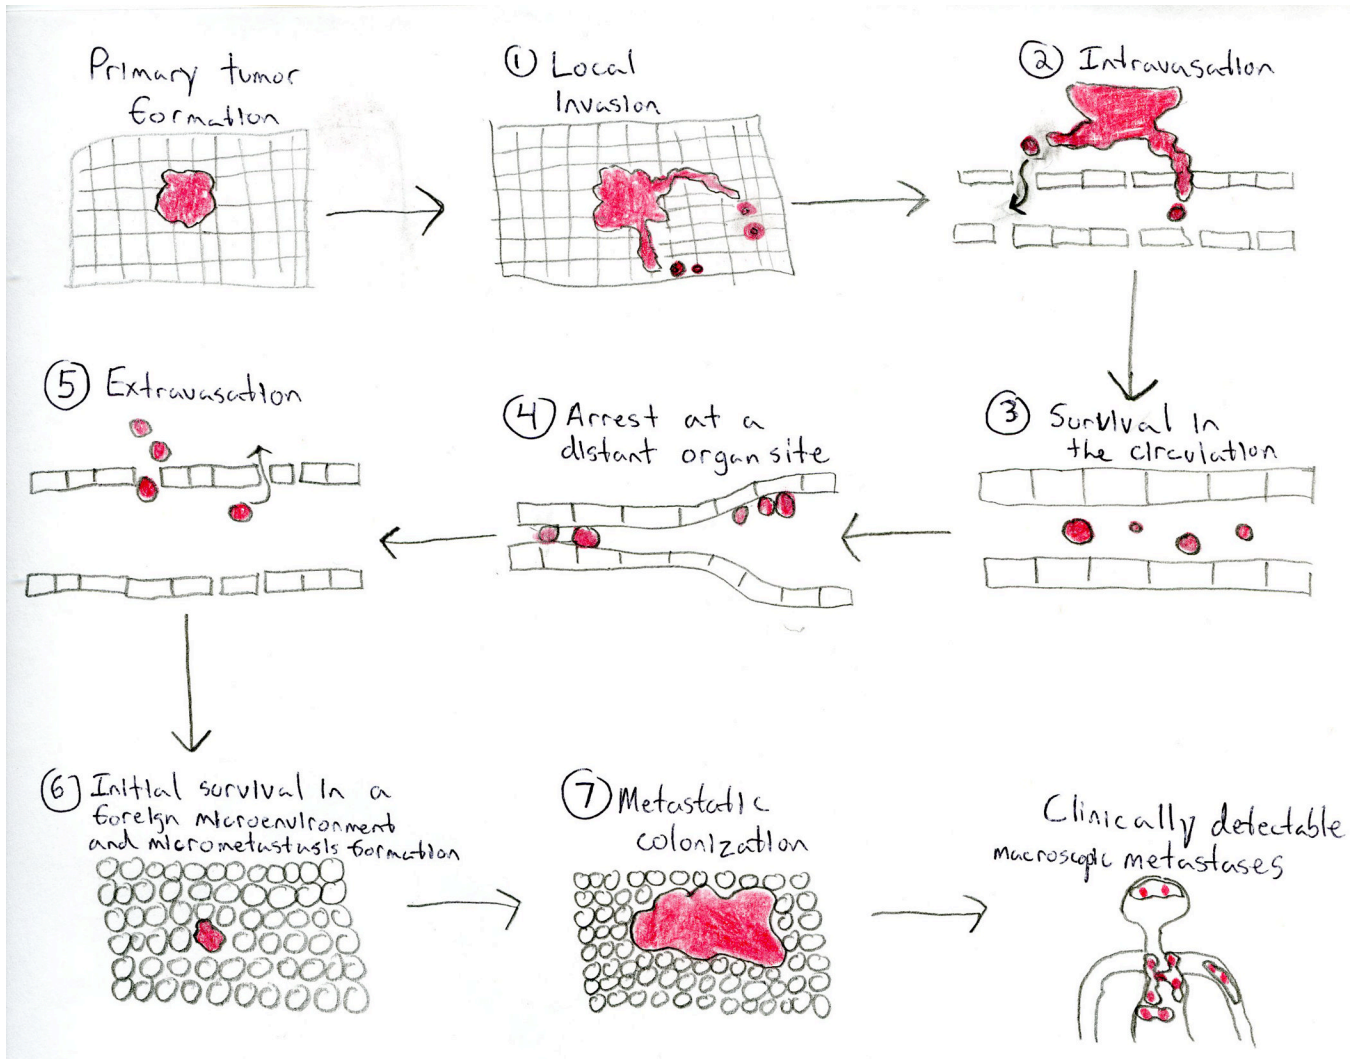 Primary tumor
formation
① Local
Invasion
② Intravasation
③ Survival in
the circulation
④ Arrest at a
distant organ site
⑤ Extravasation
⑥ Initial survival in a
foreign microenvironment
and micrometastasis formation
⑦ Metastatic
colonization
Clinically detectable
macroscopic metastases